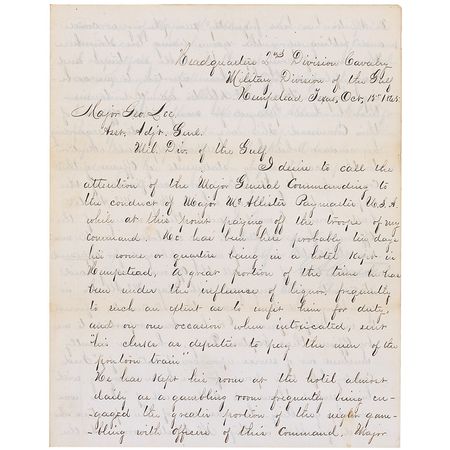 Headquarters 2nd Division Cavalry
Military Division of the Gulf
Hempstead Texas, Oct, 1865
Major Geo. Lee
Asst. Adjt. Genl.
Mil. Div. of the Gulf
I desire to call the
attention of the Major General Commanding to
the conduct of Major McAllister Paymaster U.S.A
while at this point paying off the troops of my
command. He has been here probably ten days
his rooms or quarters being in a hotel kept in
Hempstead, A great portion of the time he has
been under the influence of liquor frequently
to such an extent as to unfit him for duty,
and on one occasion when intoxicated, sent
"his clerks as deputies to pay the men of the
pontoon train"
He has kept his room at the hotel almost
daily as a gambling room frequently being en-
-gaged the greater portion of the night gam-
-bling with officers of this Command. Major